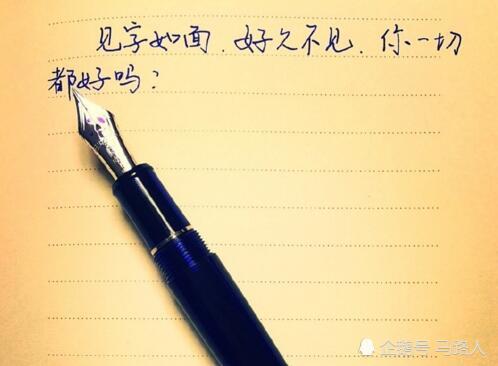 见字如面，好久不见，你一切
都好吗？
企鹅号 马路人